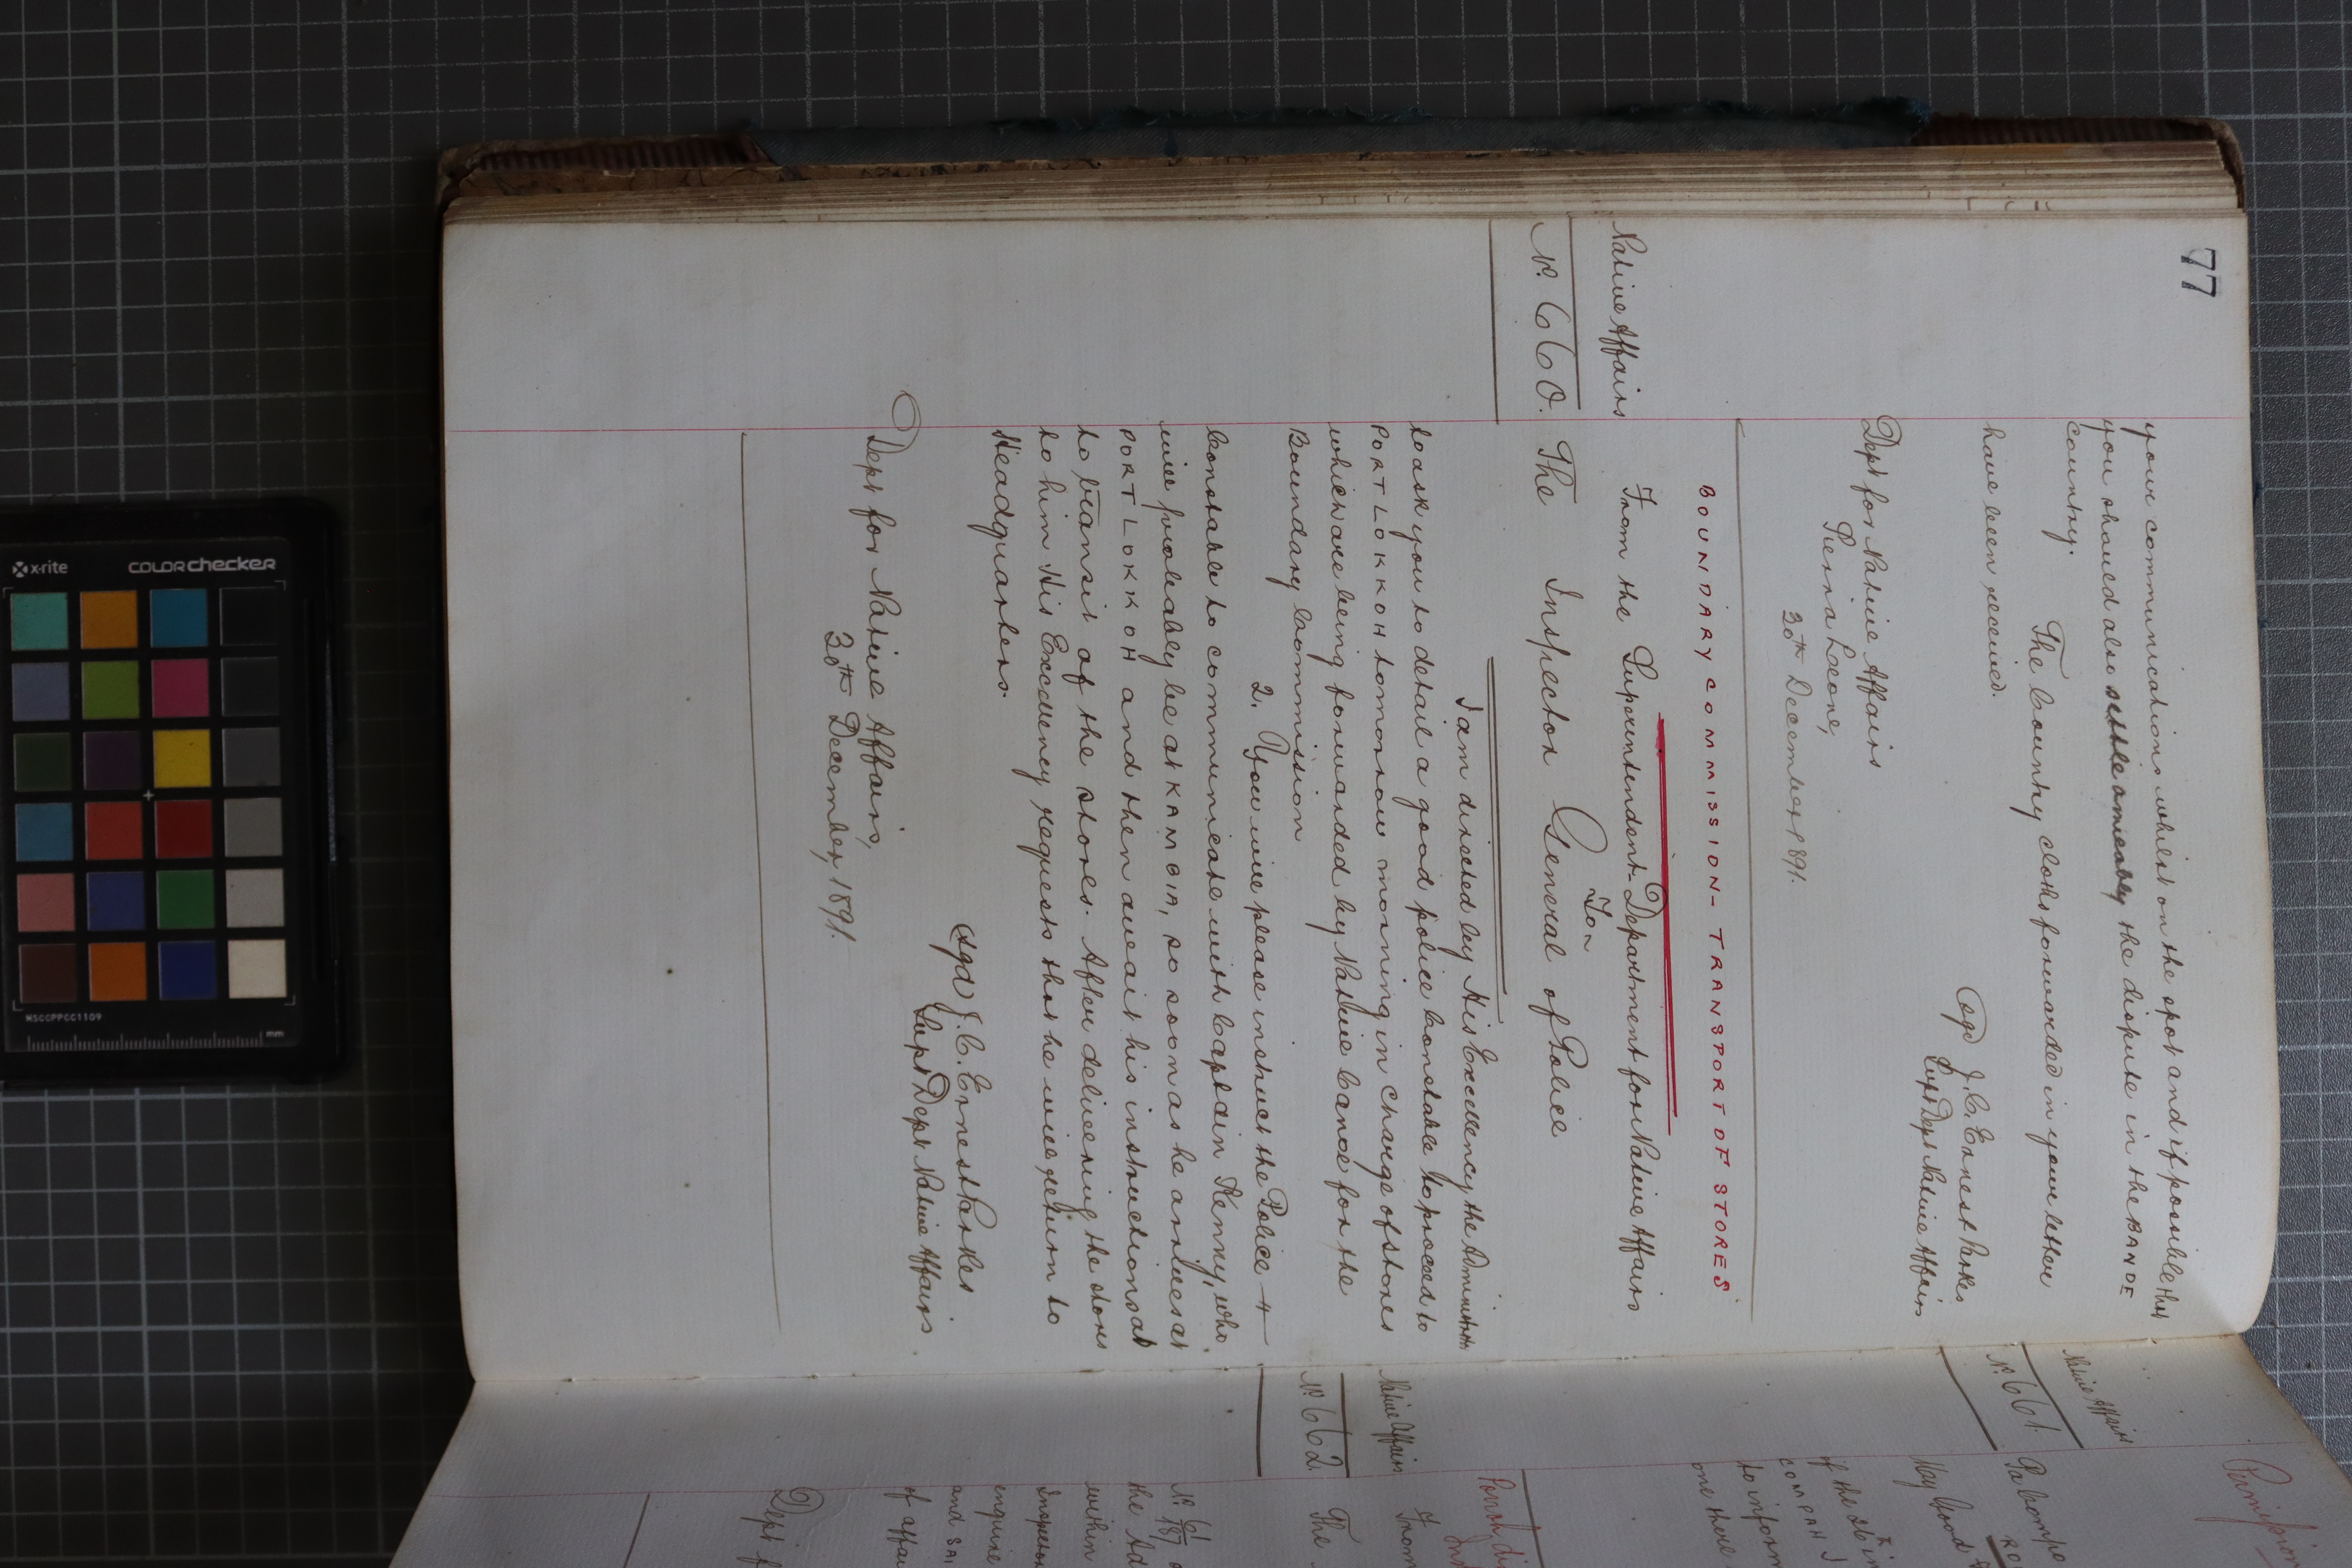 77
your communications whilst on the spot and if possible that
you should also settle amicably the dispute in the BANDE
country.
The Country cloths forwarded in your letter
have been received.
(Sgd) J. C. Ernest Parkes
Supt Dept Native Affairs
Dept for Native Affairs
Sierra Leone,
30th December 1891.
BOUNDARY COMMISSION - TRANSPORT OF STORES
Native Affairs
From the Superintendent - Department for Native Affairs
To
No. 660.
The Inspector General of Police
I am directed by His Excellency the Administrator
to ask you to detail a good police Constable to proceed to
PORT LOKKOH tomorrow morning in charge of stores
which are being forwarded by Native Canoe for the
Boundary Commission
2. You will please instruct the Police
Constable to communicate with Captain Kenny, who
will probably be at KAMBIA, so soon as he arrives at
PORT LOKKOH and then await his instructions as
to transit of the stores. After delivering the stores
to him His Excellency requests that he will return to
Headquarters.
(Sgd) J. C. Ernest Parkes
Supt Dept Native Affairs
Dept for Native Affairs,
30th December, 1891.
Native Affairs
No. 661.
Pa Compa
May Wood
if the
COMPAH
to inform
one there
Native Affairs
No. 662.
From
The
No. 61/187
the Ad
within
Inspector
enquire
and SAI
of affai
Dept f
x-rite
colorchecker
MSCCPPCC1109
mm